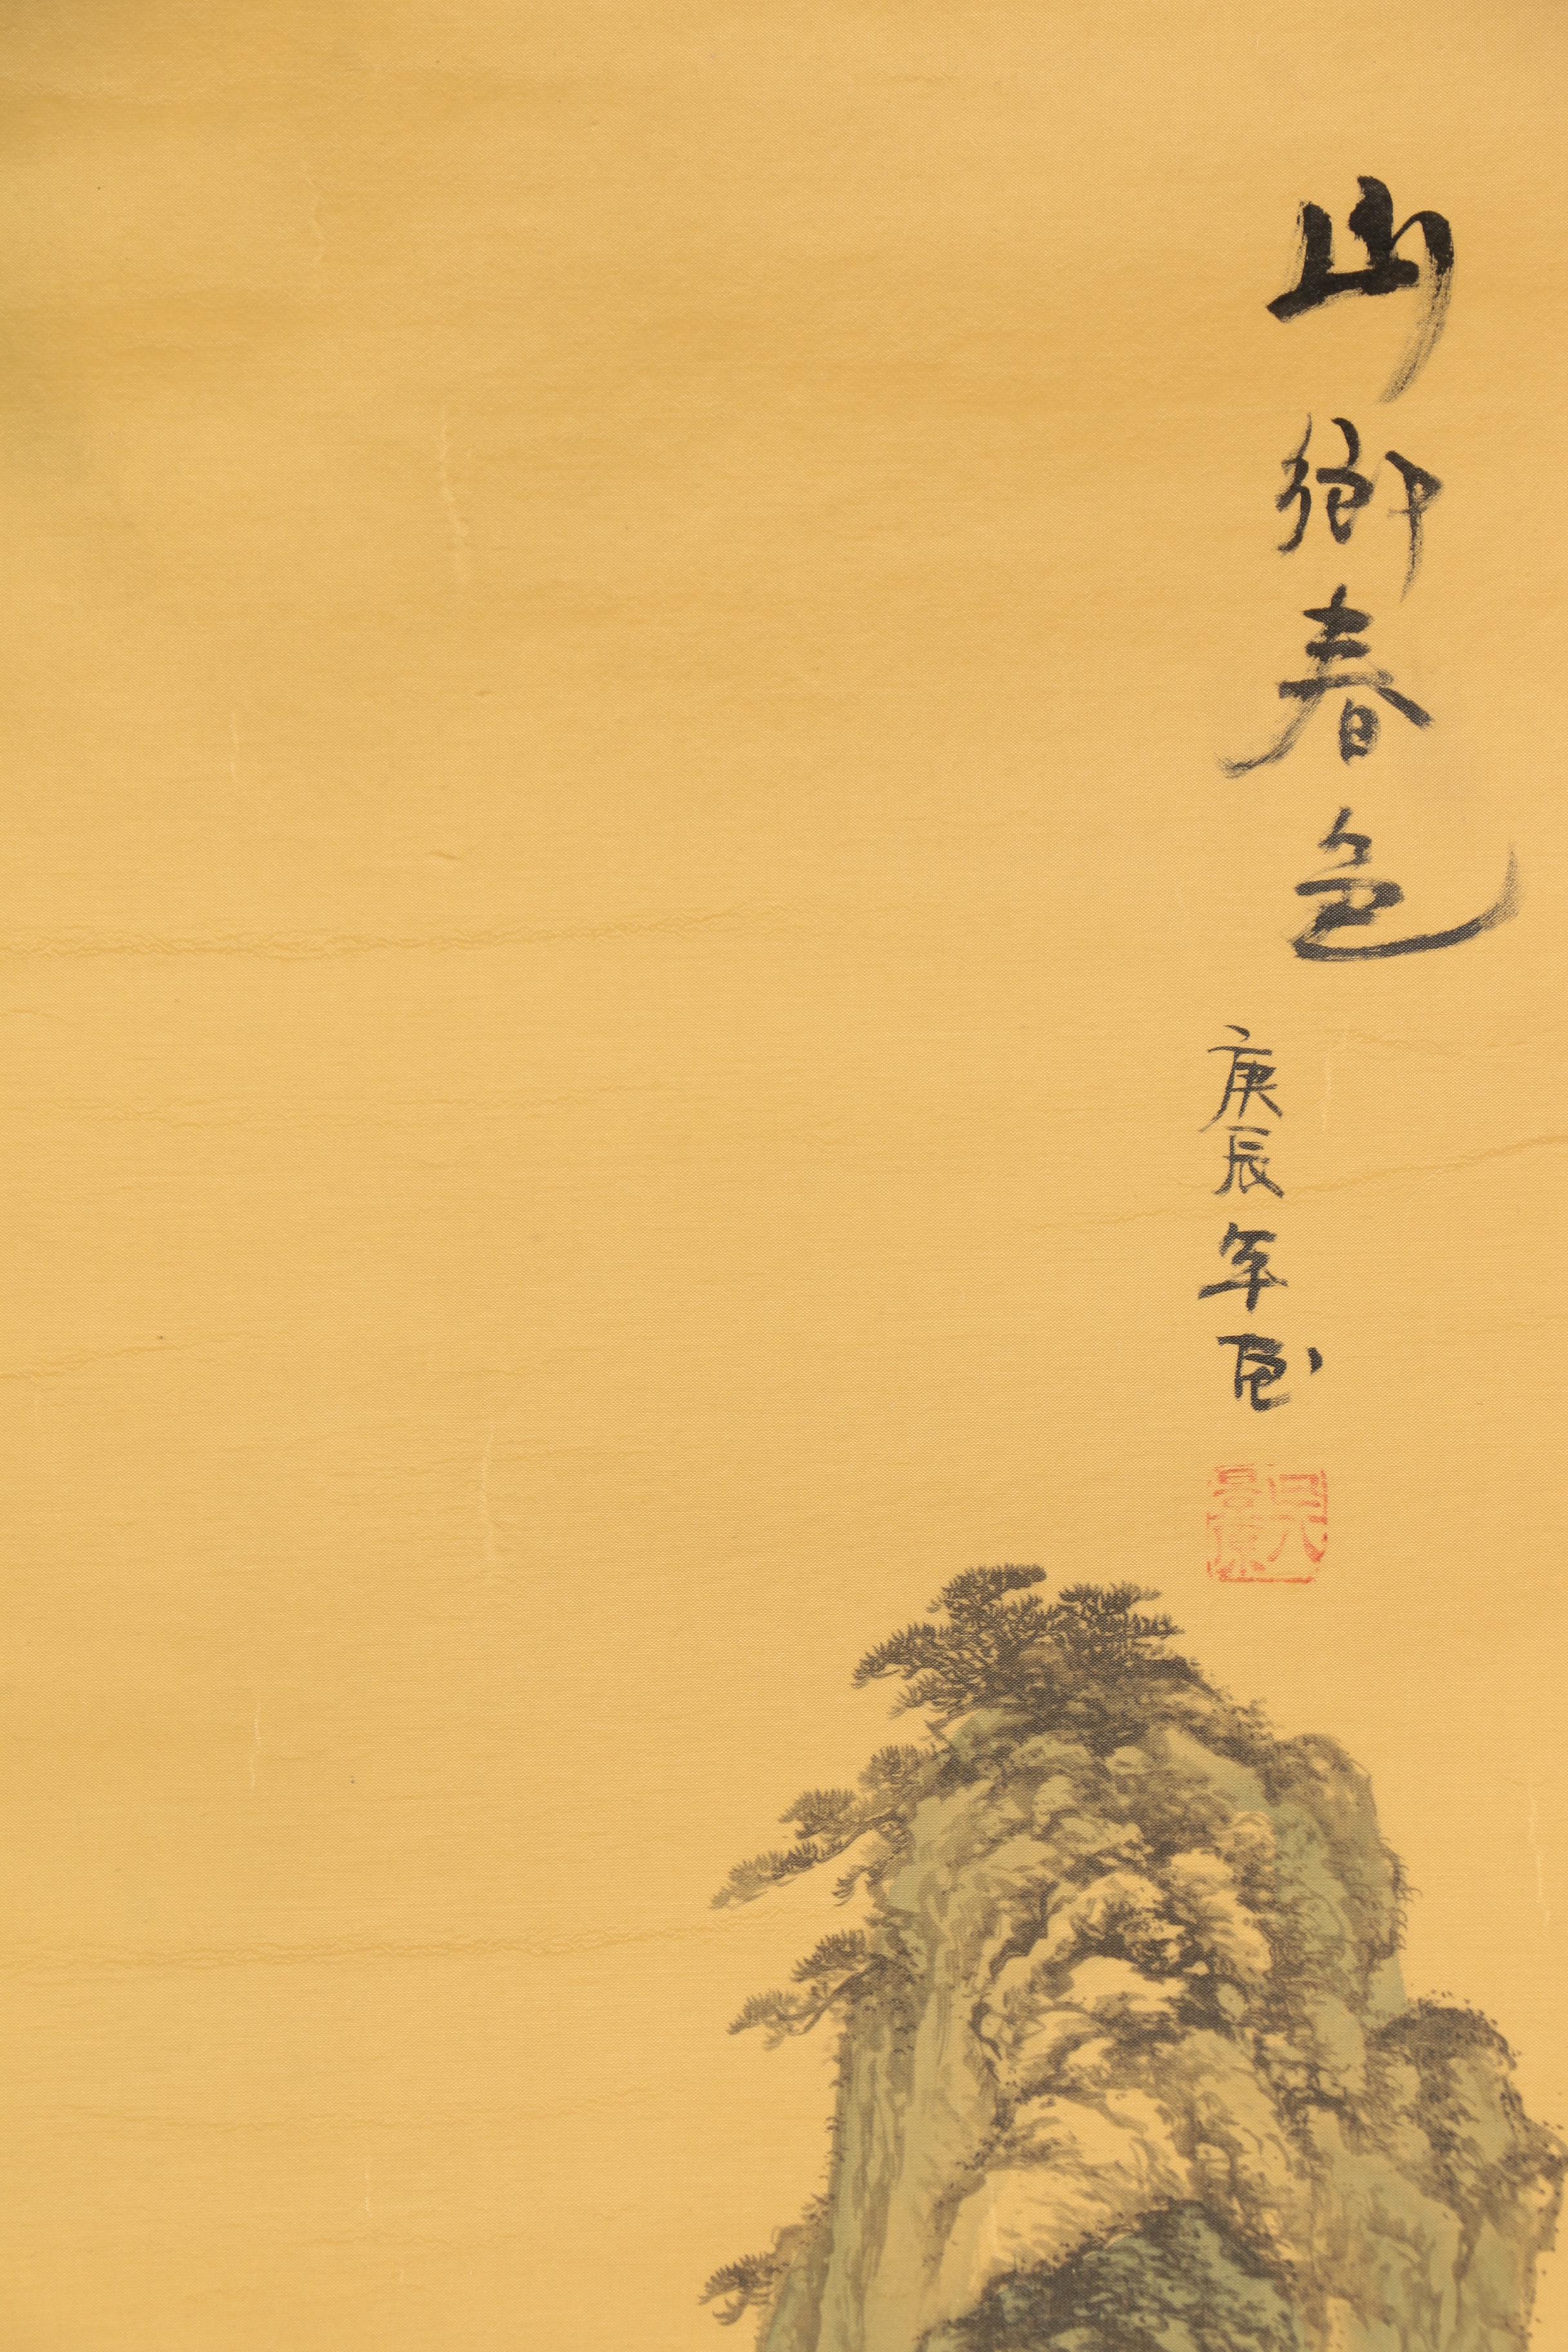 山鄉春色
庚辰年